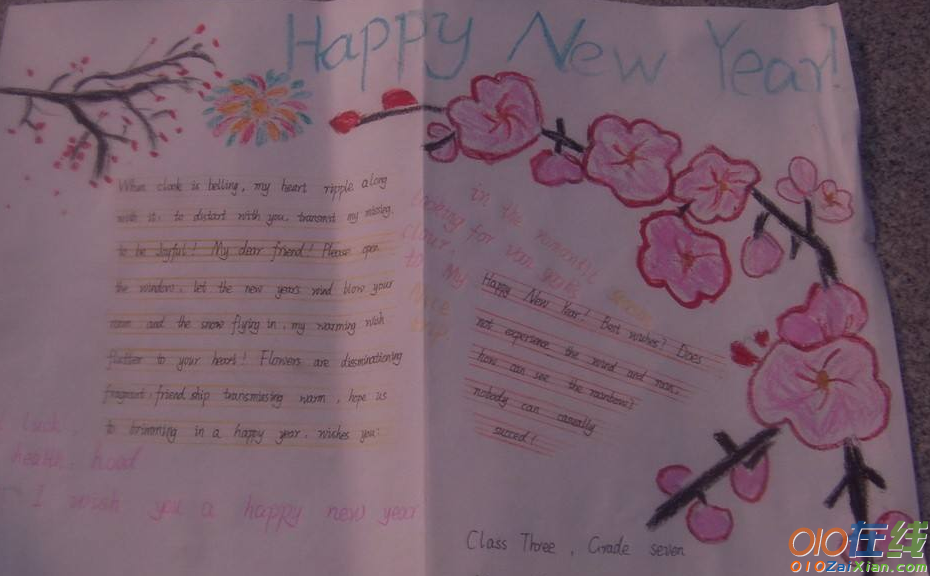 Happy New Year!
When clock is belling, my heart ripple along
with it, to distant with you, transmist my missing.
to be Joyful! My dear friend! Please open
the windows, let the new years wind blow your
room and the snow flying in, my warming wish
flutter to your heart! Flowers are disseminationing
fragrant, friend ship transmissing warm, hope us
to brimming in a happy year, wishes you:
luck
health, hood
I wish you a happy new year
in the romantic
looking for your
to My
Happy New Year! Best wishes? Does
not experience the wind and rain,
how can see the rainbow?
nobody can casually
succed!
Class Three, Grade seven
010在线
010ZaiXian.com